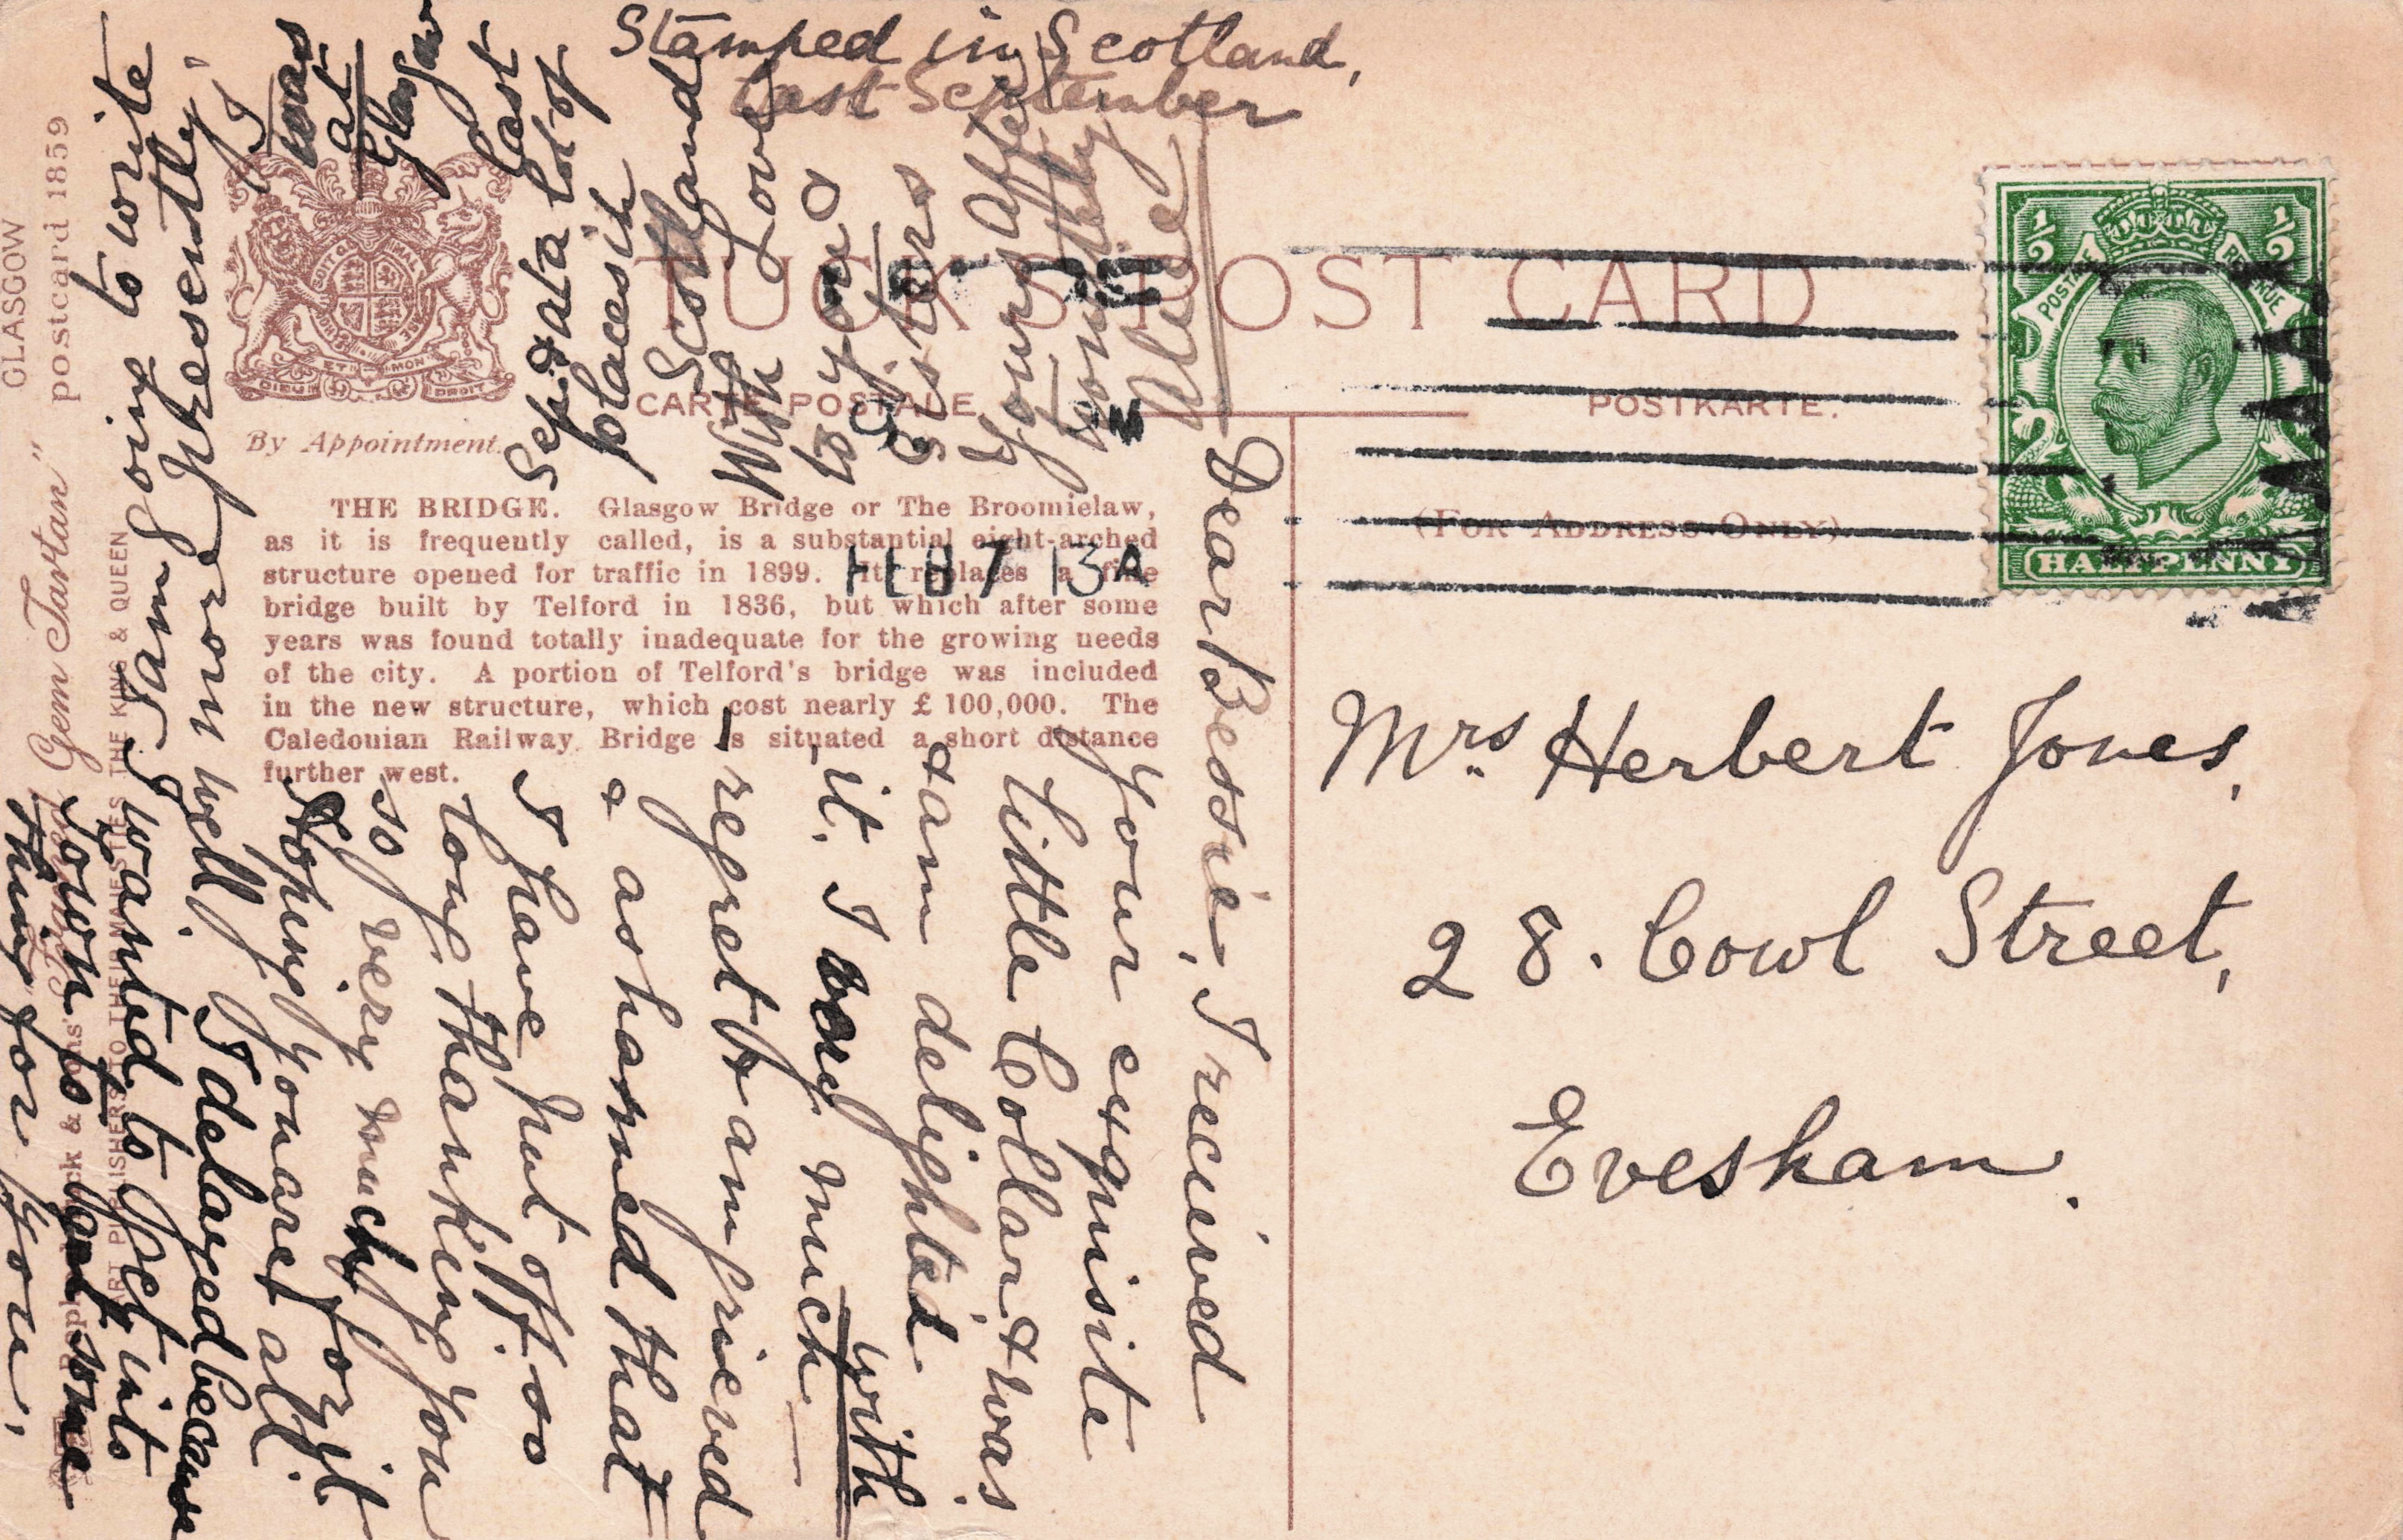 Stamped in Scotland,
Last September
TUCK'S POST CARD
CARTE POSTALE.
POSTKARTE.
(FOR ADDRESS ONLY)
By Appointment.
DIEU ET MON DROIT
THE BRIDGE. Glasgow Bridge or The Broomielaw,
as it is frequently called, is a substantial eight-arched
structure opened for traffic in 1899. It replaces a fine
bridge built by Telford in 1836, but which after some
years was found totally inadequate for the growing needs
of the city. A portion of Telford's bridge was included
in the new structure, which cost nearly £ 100,000. The
Caledonian Railway Bridge is situated a short distance
further west.
FEB 7 13 A
POSTAGE REVENUE
½ ½
HALFPENNY
Mrs Herbert Jones,
28. Cowl Street,
Evesham.
Dear Bessie, I received
your exquisite
little Collar, & was
& am delighted
with
it. I very much
regret & am grieved
& ashamed that
I have put off so
long thanking you
so very much for it.
Hoping you are all
well. I delayed because
I wanted to get into
Town to get some
thing for you.
I am going to write
you more presently.
I was at Glasgow last
Sept & at a lot of
places in
Scotland
With Love
to you &
Sisters
Yours affec
tionately
Alice
GLASGOW
postcard 1859
"Gem Tartan"
ART PUBLISHERS TO THEIR MAJESTIES THE KING & QUEEN